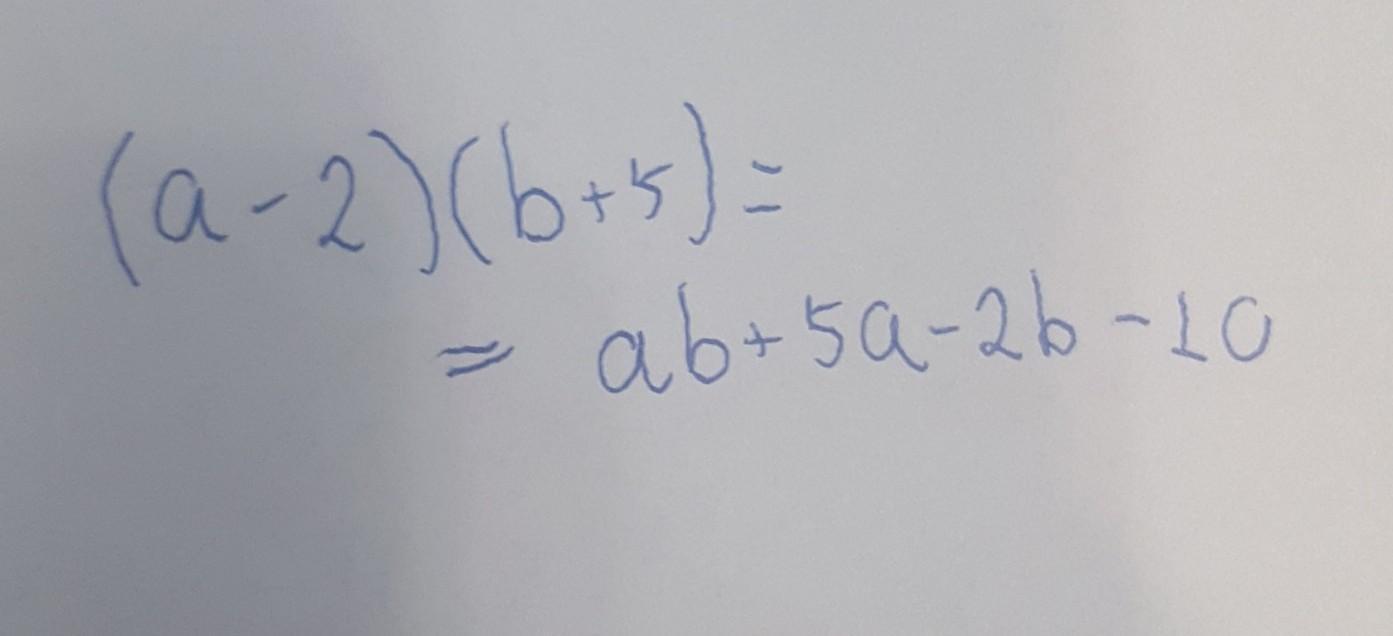 (a-2)(b+5)=
= ab+5a-2b-10